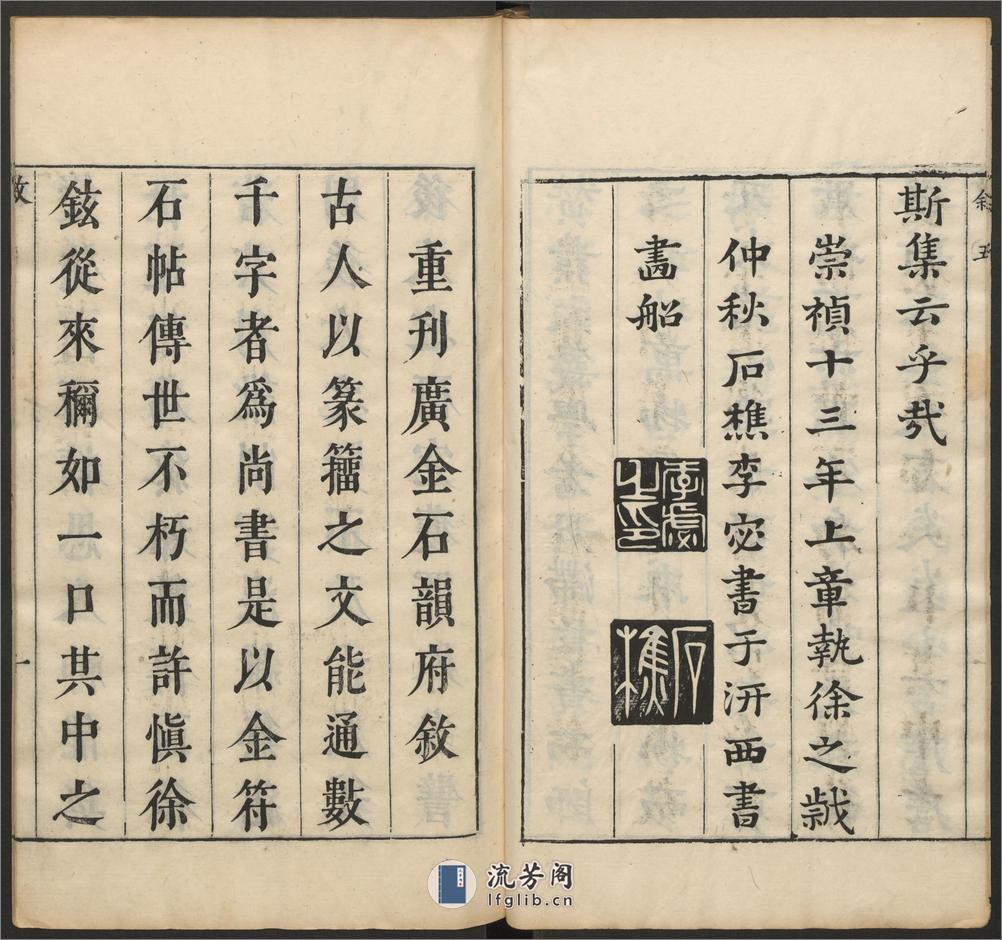 敘 五
斯集云乎哉
崇禎十三年上章執徐之歲
仲秋石樵李宓書于汧西書
畵船
李宓之印
石樵
重刊廣金石韻府敘
古人以篆籀之文能通數
千字者爲尚書是以金符
石帖傳世不朽而許愼徐
鉉從來稱如一口其中之
敘
一
流芳阁
lfglib.cn